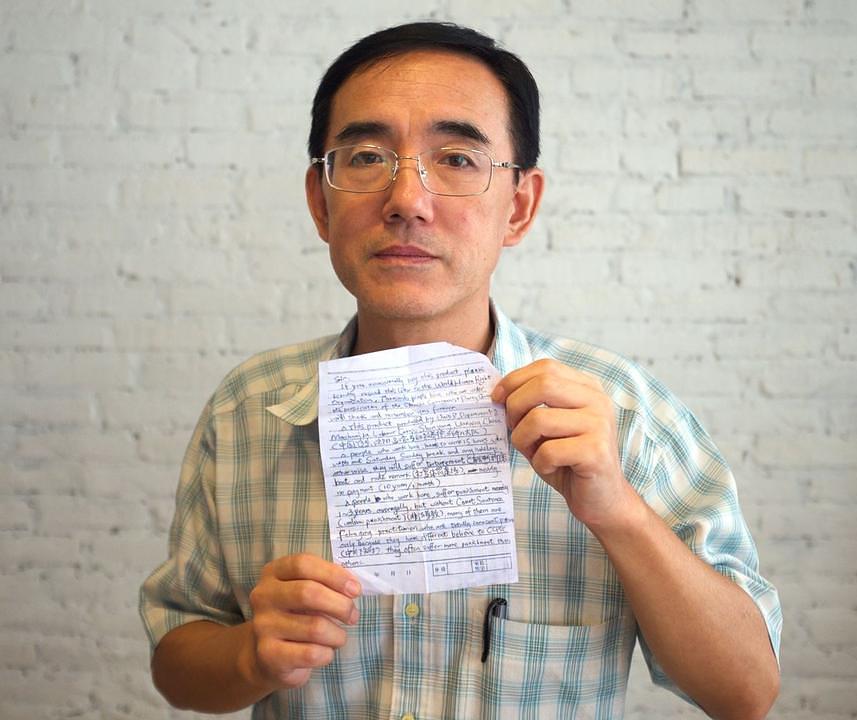 Sir:
If you occasionally buy this product, please
kindly resend this letter to the World Human Right
Organization. Thousands people here who are under
the persecution of the
will thank and remember you forever.
This product produced by Unit 8, Department 2,
Labour Camp, Shenyang, Liaoning, China
people who work here, have to work 15 hours a day
with out Saturday, Sunday break and any holidays,
otherwise, they will suffer
beat and rude remark nearly
no payment (10 yuan/1 month)
people who work here, suffer punishment nearly
1~3 years averagely, but without Court Sentence
many of them are
Falun gong practitioner, who are totally innocent people
only because they have different believe to CCPG
they often suffer more punishment than
others.